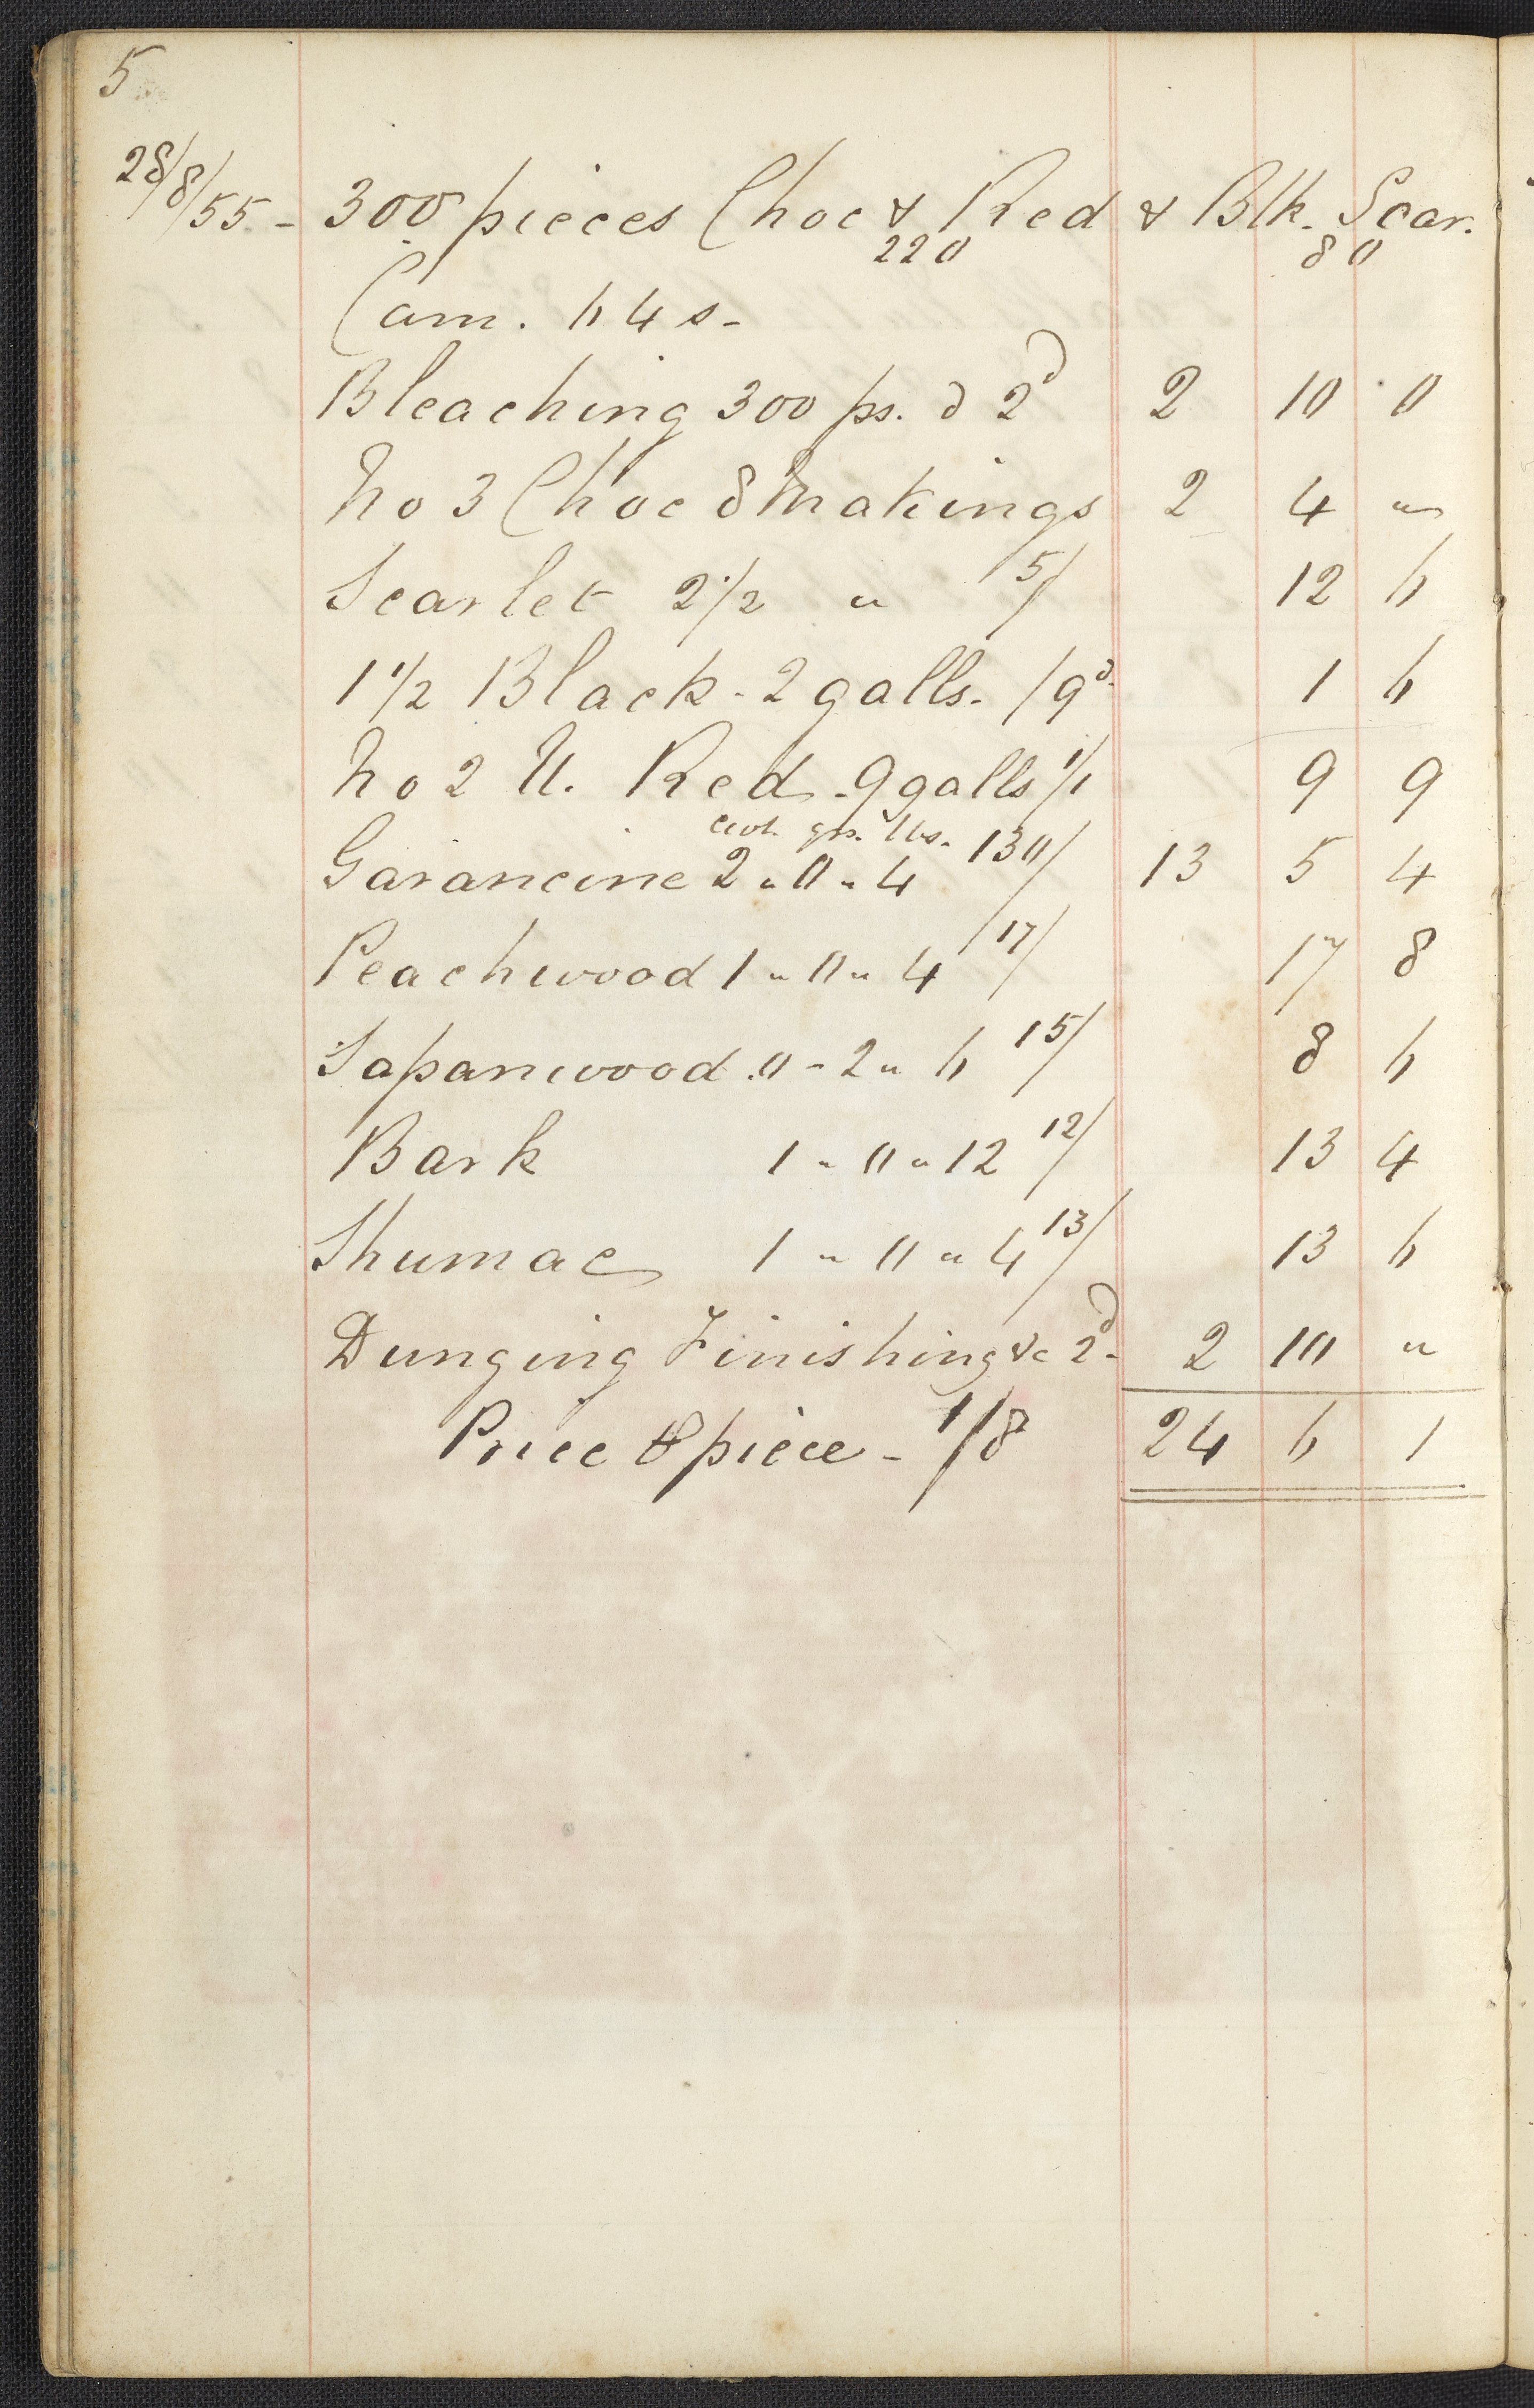 5
28/8/55 - 300 pieces Choc & Red & Blk. Scar.
220 80
Cam. 64s-
Bleaching 300 ps. @ 2d 2 10 0
No 3 Choc 8 makings 2 4 "
Scarlet 2 1/2 " 5/ 12 6
1 1/2 Black - 2 galls. /9d. 1 6
No 2 U. Red - 9 galls 1/1 9 9
cwt. qrs. lbs.
Garancine 2 " 0 " 4 130/ 13 5 4
Peachwood 1 " 0 " 4 17/ 17 8
Sapanwood . 0 - 2 " 6 15/ 8 6
Bark 1 " 0 " 12 12/ 13 4
Shumac 1 " 0 " 4 13/ 13 6
Dunging Finishing &c 2d - 2 10 "
Price ⅌ piece - 1/8 24 6 1